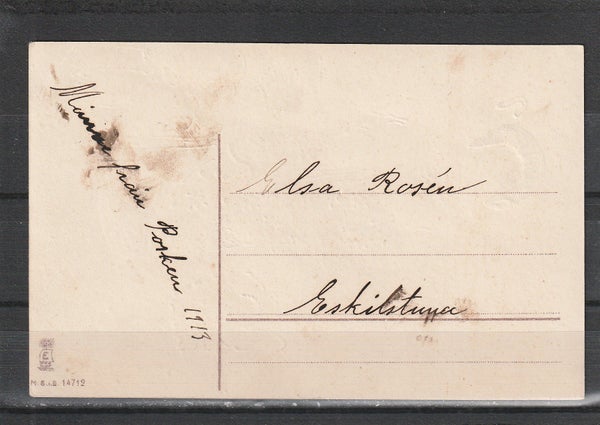 Minne från Posken 1913
Elsa Rosén
Eskilstuna
E
M.S.i.B. 14712